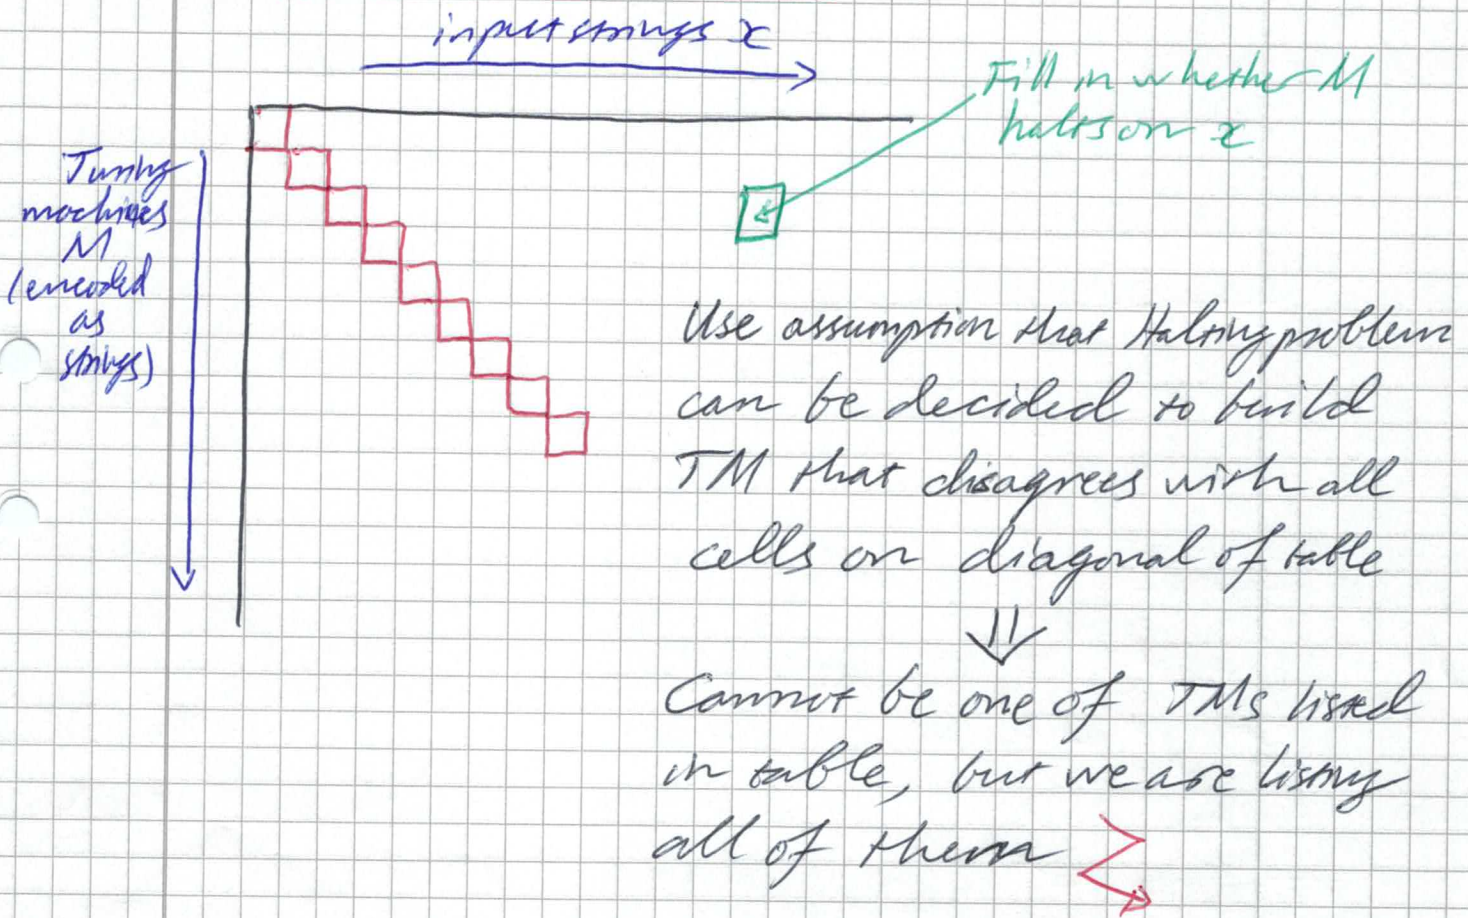 input strings x
Fill in whether M
halts on x
Turing
machines
M
(encoded
as
strings)
Use assumption that Halting problem
can be decided to build
TM that disagrees with all
cells on diagonal of table
⇓
Cannot be one of TMs listed
in table, but we are listing
all of them